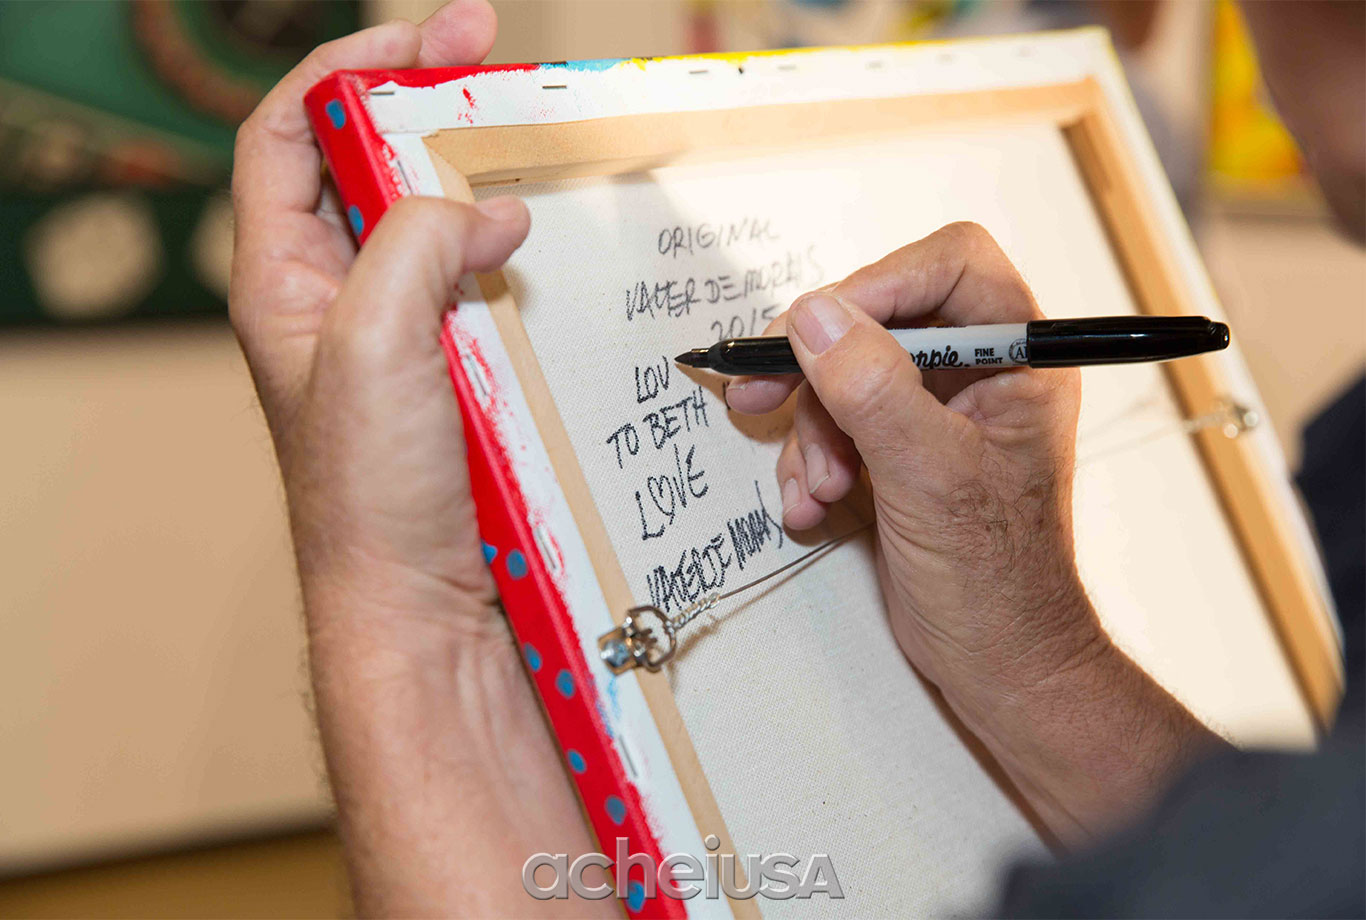 ORIGINAL
VALTER DE MORAIS
2015
LOV
TO BETH
LOVE
VALTER DE MORAIS
rpie
FINE
POINT
acheiUSA